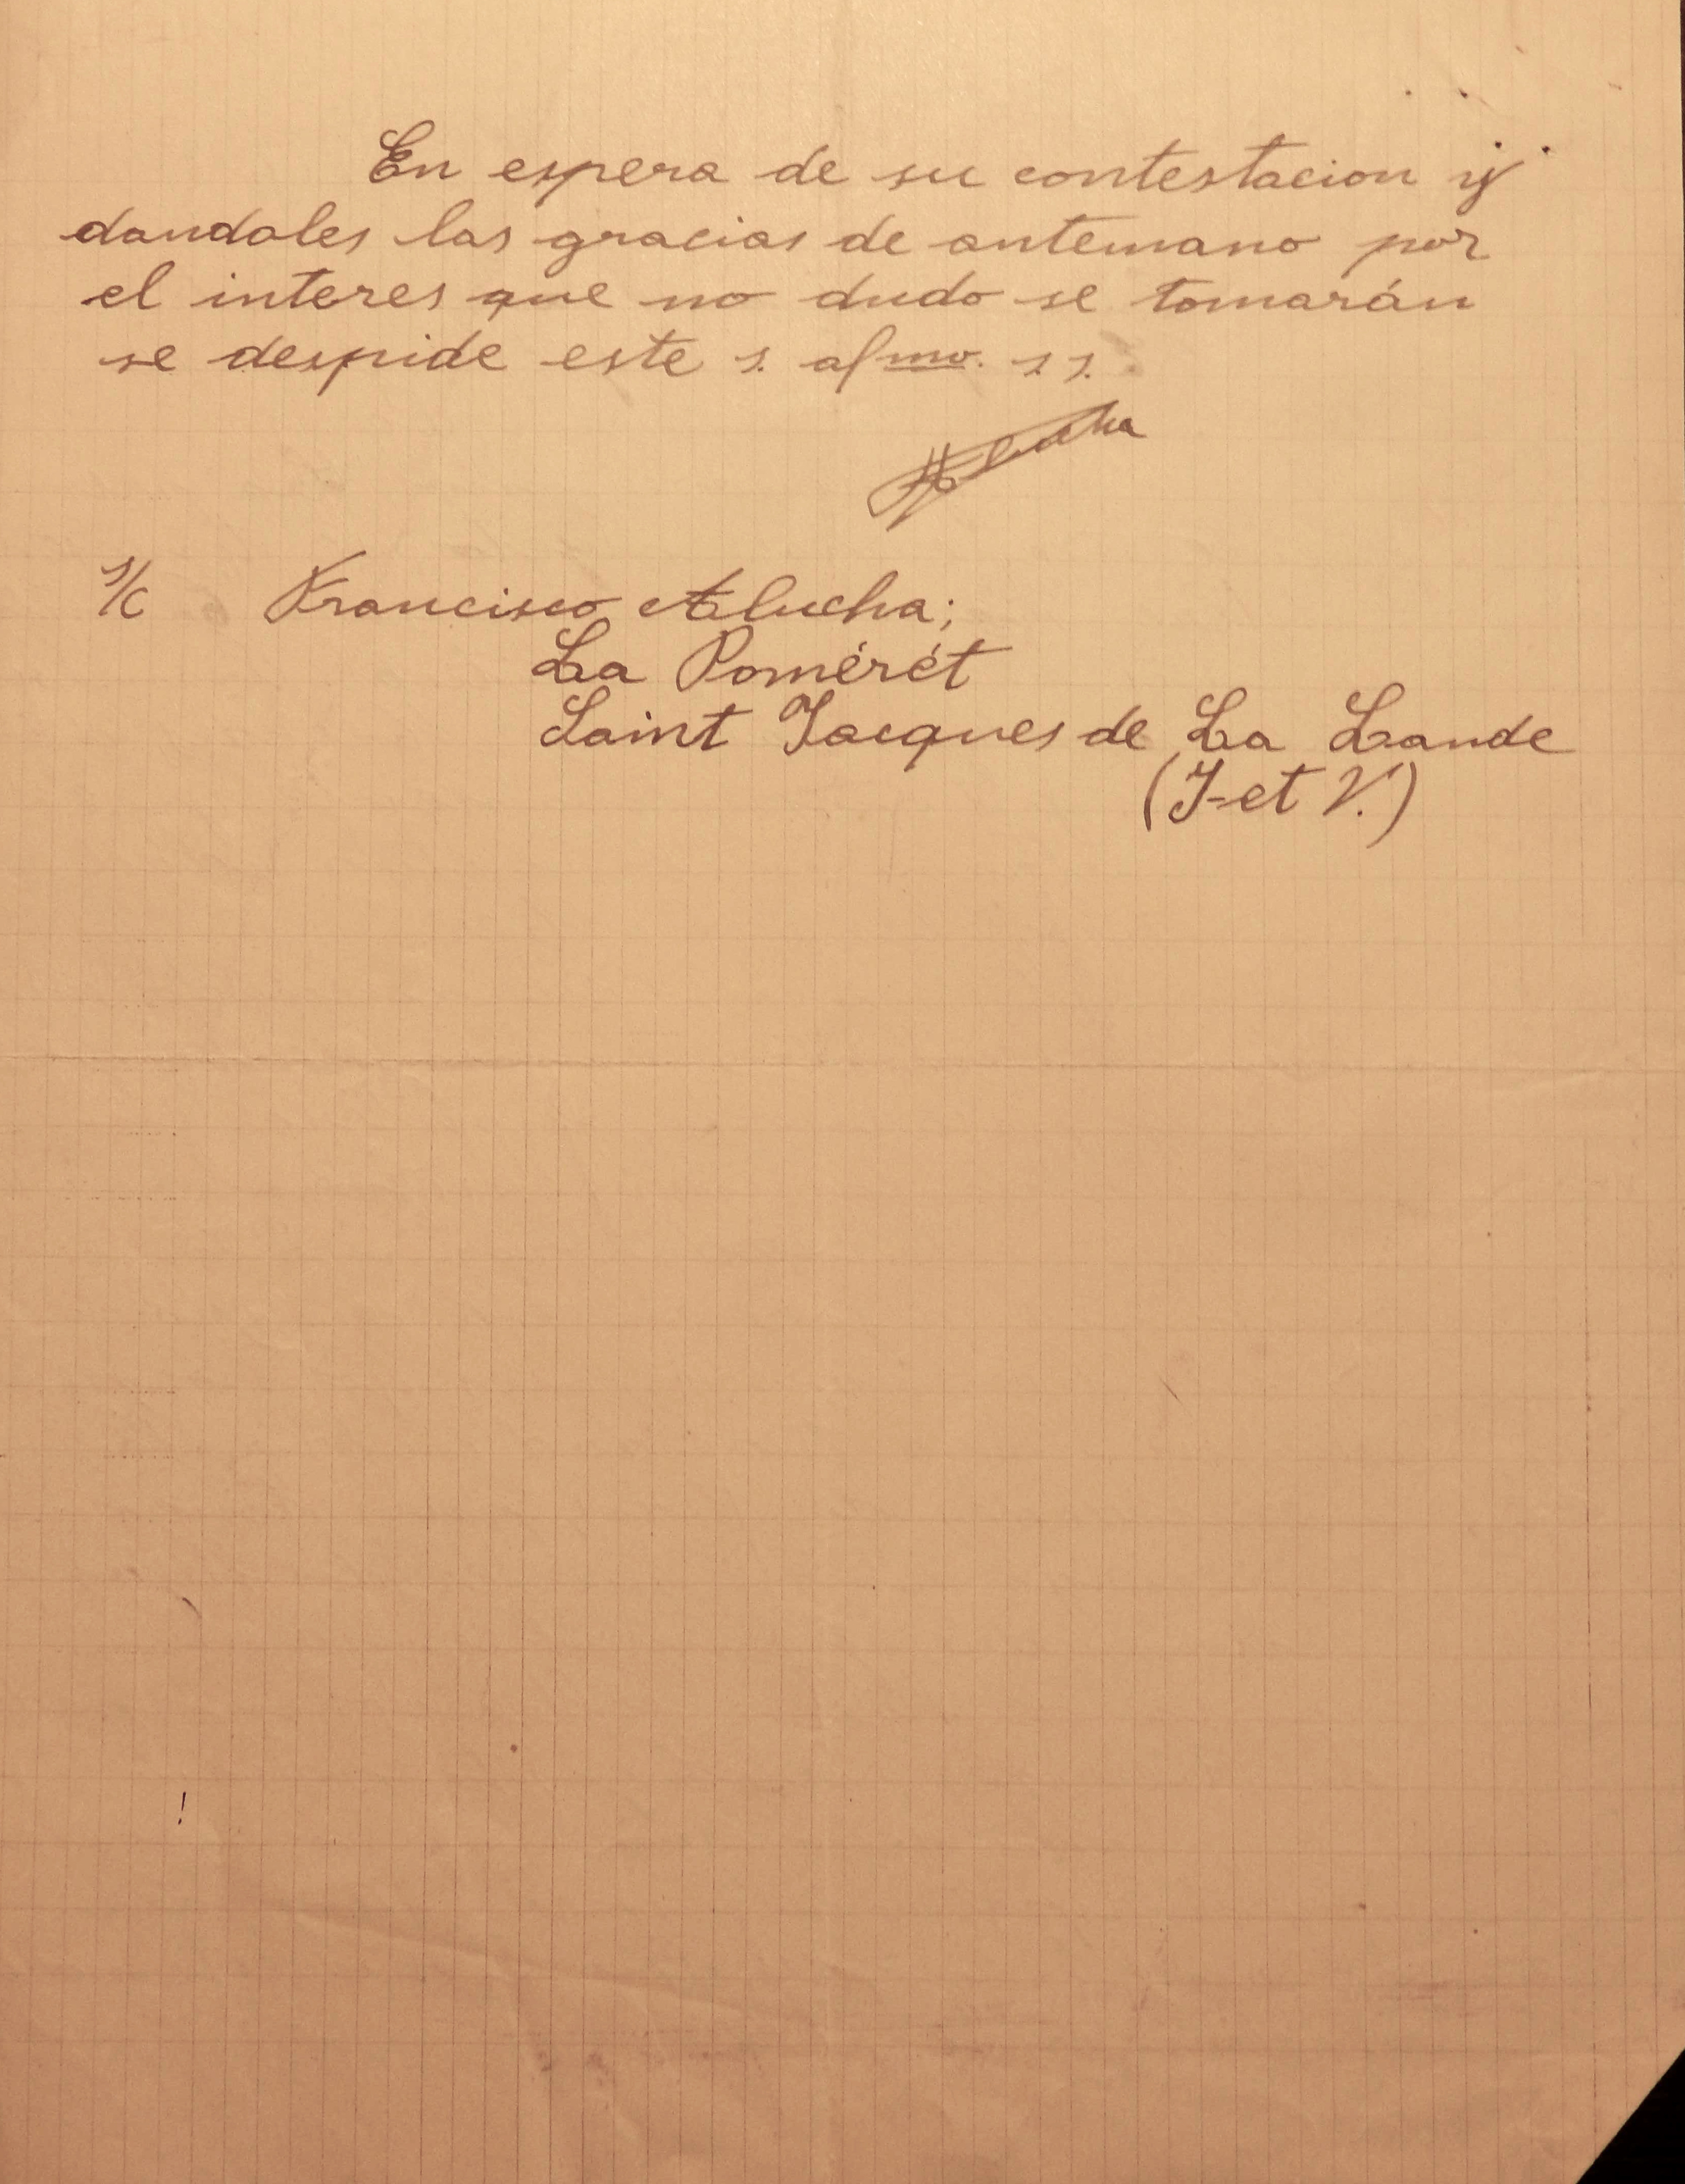 En espera de su contestacion y
dandoles las gracias de antemano por
el interes que no dudo se tomarán
se despide este s. afmo. s s.
Alucha
s/c Francisco Alucha;
La Pomérét
Saint Jacques de La Lande
(I-et V.)